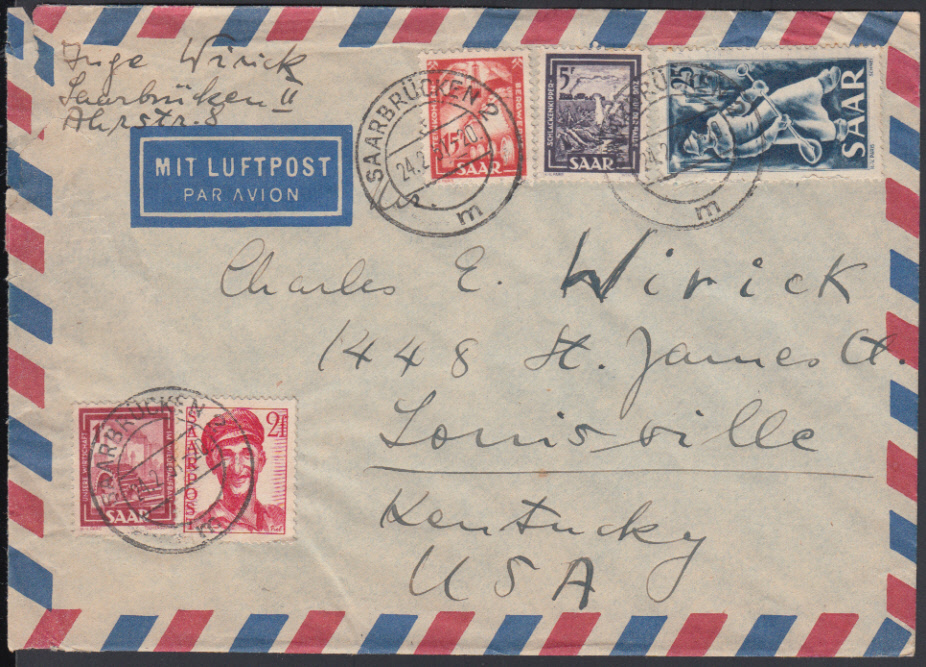 Inge Wirick
Saarbrücken II
Ahrstr. 8
MIT LUFTPOST
PAR AVION
SAARBRÜCKEN 2
24.2.
m
BERGWERK
SAAR
5F
SCHLACKENKIPPER
SAAR
25F
SAAR
m
Charles E. Wirick
1448 St. James Ct.
Louisville
Kentucky
USA
SAARBRÜCKEN
1F
SAAR
SAARPOST
2f